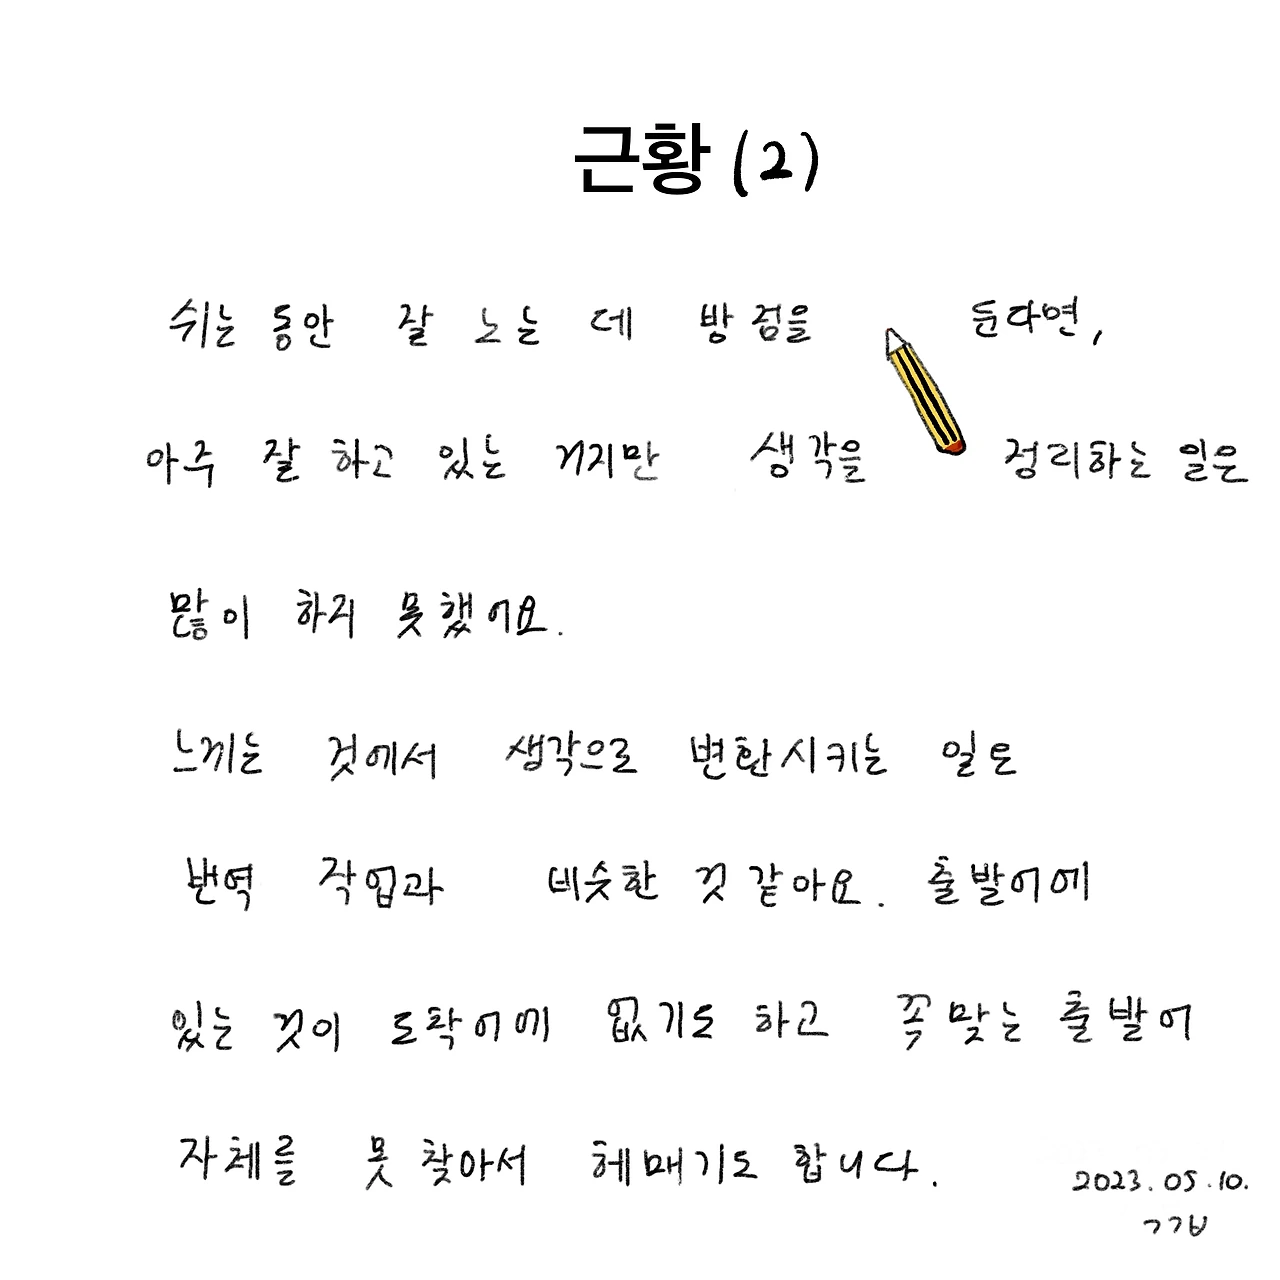 근황 (2)
쉬는 동안 잘 노는 데 방점을 둔다면,
아주 잘 하고 있는 거지만 생각을 정리하는 일은
많이 하리 못했어요.
느끼는 것에서 생각으로 변환시키는 일도
번역 작업과 비슷한 것 같아요. 출발어에
있는 것이 도착어에 없기도 하고 꼭 맞는 출발어
자체를 못 찾아서 헤매기도 합니다.
2023.05.10.
ㄱㄱㅂ